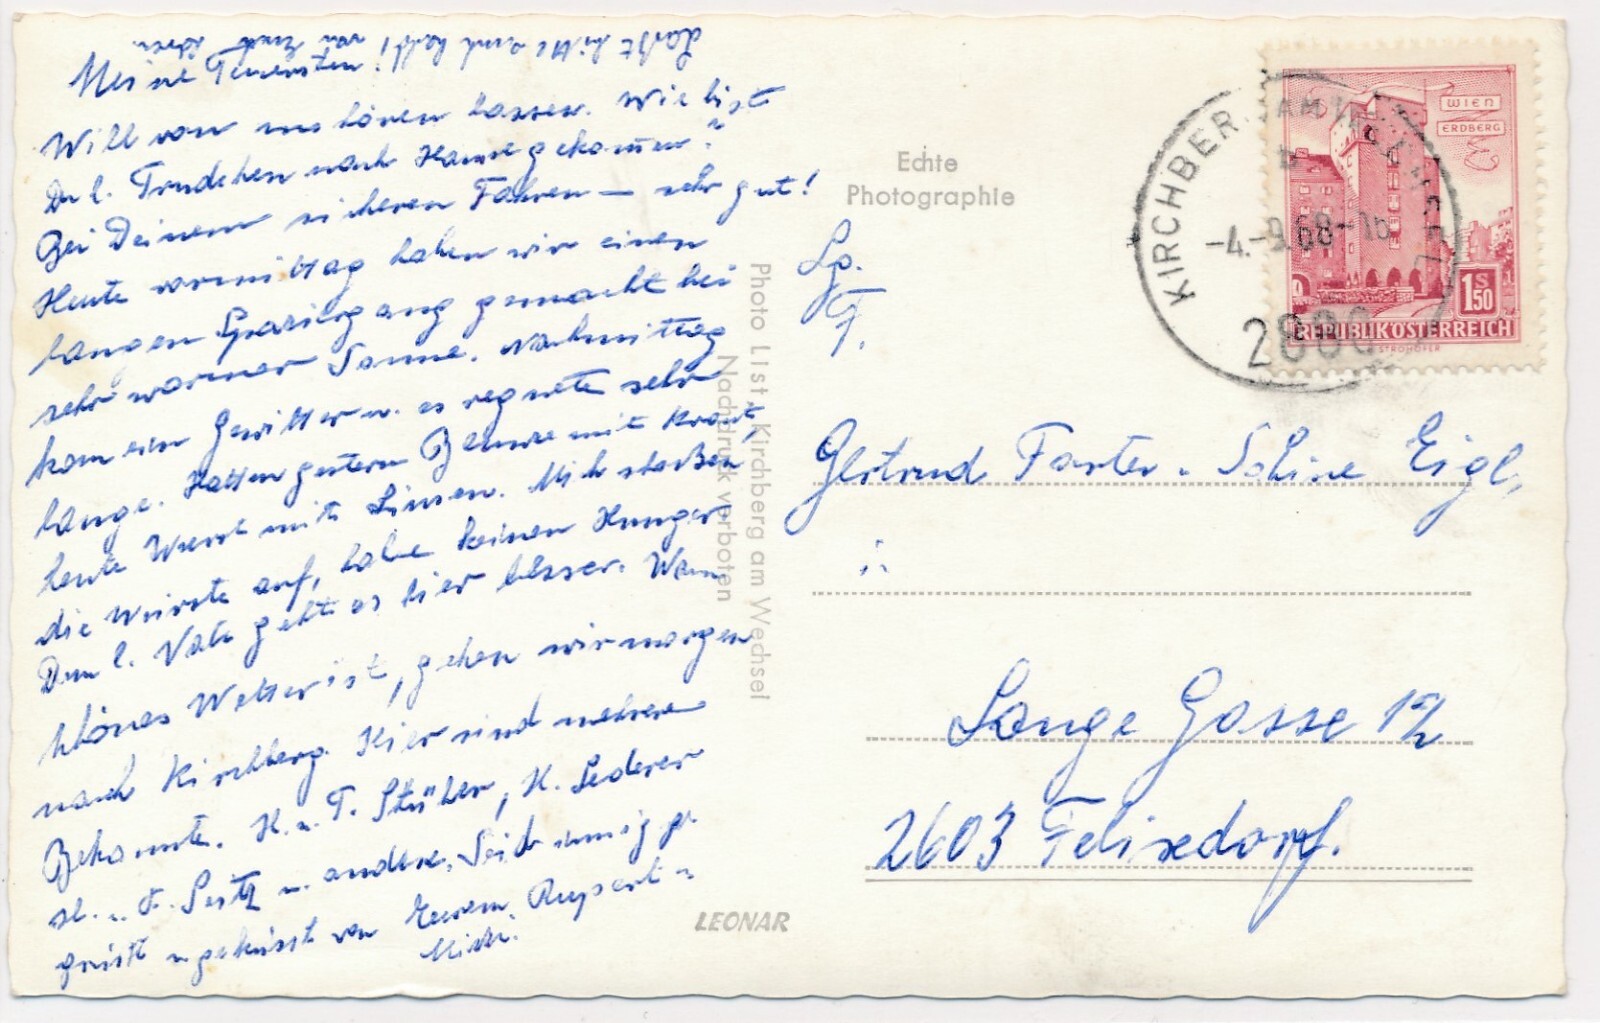 Meine Teuersten!
Will von uns hören lassen. Wie bist
Du l. Trudchen nach Hause gekommen?
Bei Deinem sicheren Fahren – sehr gut!
Heute vormittag haben wir einen
langen Spaziergang gemacht bei
sehr warmer Sonne. Nachmittag
kam ein Gewitter u. es regnete sehr
lange. Hatten gestern mit Kraut,
heute Wurst mit Linsen. Mich stoßen
die Würste auf, habe keinen Hunger.
Dem l. Vati geht es hier besser. Wenn
schönes Wetter ist, gehen wir morgen
nach Kirchberg. Hier sind mehrere
Bekannte. H. u. F. Stüber, H. Lederer
H. u. F. Seitz u. andere. Seid innigst
grüßt u geküsst von Eurem Rupert u
Mitzi.
Laßt bitte auch bald
von Euch hören
Echte
Photographie
Photo List, Kirchberg am Wechsel
Nachdruck verboten
LEONAR
KIRCHBERG AM WECHSEL
-4.-9.68-16
2880
WIEN
ERDBERG
1S50
REPUBLIK ÖSTERREICH
STROHOFER
Lp.
F.
Gertrud Forter - Sabine Eigl,
Lange Gasse 12
2603 Felixdorf.